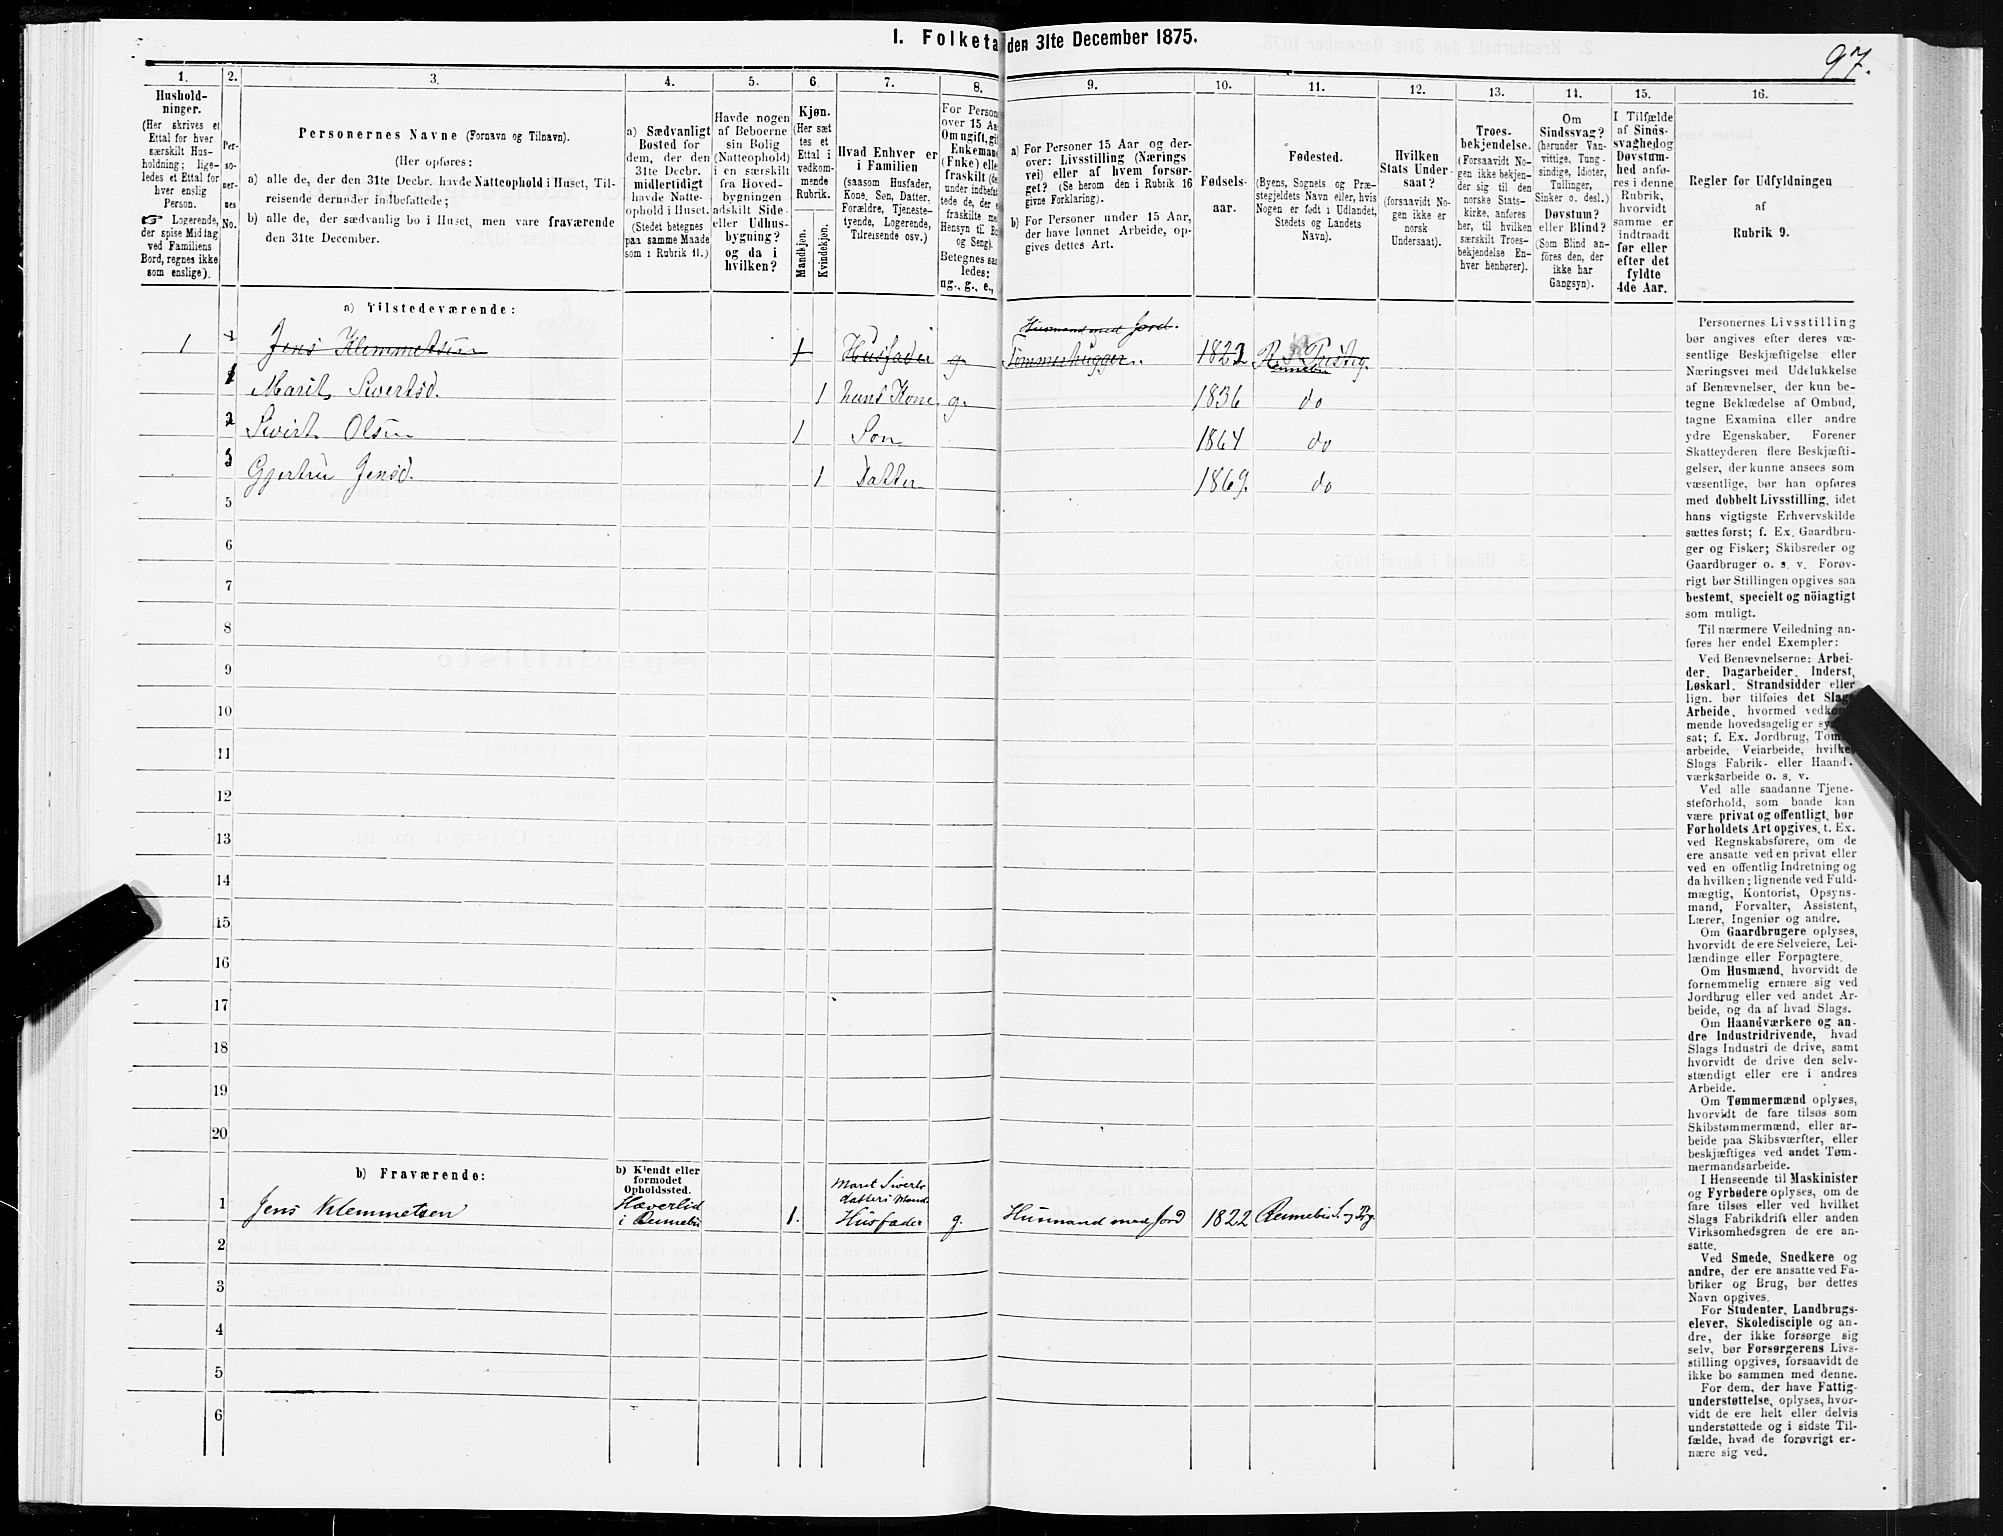 I. Folketa den 31te December 1875.
97.
1.
Hushold-
ninger.
(Her skrives et
Ettal for hver
særskilt Hus-
holdning; lige-
ledes et Ettal for
hver enslig
Person.
☞ Logerende,
der spise Middag
ved Familiens
Bord, regnes ikke
som enslige).
2.
Per-
so-
ner-
nes
No.
3.
Personernes Navne (Fornavn og Tilnavn).
(Her opføres:
a) alle de, der den 31te Decbr. havde Natteophold i Huset, Til-
reisende derunder indbefattede;
b) alle de, der sædvanlig bo i Huset, men vare fraværende
den 31te December.
4.
a) Sædvanligt
Bosted for
dem, der den
31te Decbr.
midlertidigt
havde Natte-
ophold i Huset.
(Stedet betegnes
paa samme Maade
som i Rubrik 11.)
5.
Havde nogen
af Beboerne
sin Bolig
(Natteophold)
i en særskilt
fra Hoved-
bygningen
adskilt Side-
eller Udhus-
bygning?
og da i
hvilken?
6.
Kjøn.
(Her sæt
tes et
Ettal i
vedkom-
mende
Rubrik.
Mandkjøn.
Kvindekjøn.
7.
Hvad Enhver er
i Familien
(saasom Husfader,
Kone, Søn, Datter,
Forældre, Tjeneste-
tyende, Logerende,
Tilreisende osv.)
8.
For Person
over 15 Aa
Om ugift, gif
Enkemand
(Fnke) elle
fraskilt (de
under indbefat
fraskilte me
Hensyn til Bo
og Seng).
Betegnes saa
ledes:
ug., g., e.,
9.
a) For Personer 15 Aar og der-
over: Livsstilling (Nærings
vei) eller af hvem forsør-
get? (Se herom den i Rubrik 16
givne Forklaring).
b) For Personer under 15 Aar,
der have lønnet Arbeide, op-
gives dettes Art.
10.
Fødsels-
aar.
11.
Fødested.
(Byens, Sognets og Præ-
stegjeldets Navn eller, hvis
Nogen er født i Udlandet,
Stedets og Landets
Navn).
12.
Hvilken
Stats Under-
saat?
(forsaavidt No-
gen ikke er
norsk
Undersaat).
13.
Troes-
bekjendelse.
(Forsaavidt No-
gen ikke bekjen-
der sig til den
norske Stats-
kirke, anføres
her, til hvilken
særskilt Troes-
bekjendelse En-
hver henhører).
14.
Om
Sindssvag?
(herunder Van-
vittige, Tung-
sindige, Idioter,
Tullinger,
Sinker o. desl.)
Døvstum?
eller Blind?
(Som Blind an-
føres den, der
ikke har
Gangsyn).
15.
I Tilfælde
af Sinds-
svaghed og
Døvstum-
hed anfø-
res i denne
Rubrik,
hvorvidt
samme er
indtraadt
før eller
efter det
fyldte
4de Aar.
16.
Regler for Udfyldningen
af
Rubrik 9.
a) Tilstedeværende:
Husmand med Jord.
1 1 Jens Klemmetsen 1 Husfader g. Tømmerhugger. 1822 R. S Præstg.
Rennebu
1 Marit Sivertsd. 1 hans Kone g. 1836 do
2 Sivert Olsen 1 Søn 1864 do
3 Gjertru Jensd. 1 Datter 1869. do
5
6
7
8
9
10
11
12
13
14
15
16
17
18
19
20
b) Fraværende:
b) Kjendt eller
formodet
Opholdssted.
Maret Siverts
datters Mand
1 Jens Klemmetsen Haverlid
i Rennebu 1. Husfader g. Husmand med Jord 1822 Rennebu S. og Prg.
2
3
4
5
6
Personernes Livsstilling
bør angives efter deres væ-
sentlige Beskjæftigelse eller
Næringsvei med Udelukkelse
af Benævnelser, der kun be-
tegne Beklædelse af Ombud,
tagne Examina eller andre
ydre Egenskaber. Forener
Skatteyderen flere Beskjæfti-
gelser, der kunne ansees som
væsentlige, bør han opføres
med dobbelt Livsstilling, idet
hans vigtigste Erhvervskilde
sættes først; f. Ex. Gaardbru-
ger og Fisker; Skibsreder og
Gaardbruger o. s. v. Forøv-
rigt bør Stillingen opgives saa
bestemt, specielt og nöiagtigt
som muligt.
Til nærmere Veiledning an-
føres her endel Exempler:
Ved Benævnelserne: Arbei-
der, Dagarbeider, Inderst,
Løskarl, Strandsidder eller
lign. bør tilføies det Slags
Arbeide, hvormed vedkom-
mende hovedsagelig er sys-
sat; f. Ex. Jordbrug, Tømmer-
arbeide, Veiarbeide, hvilket
Slags Fabrik- eller Haand-
værksarbeide o. s. v.
Ved alle saadanne Tjene-
steforhold, som baade kan
være privat og offentligt, bør
Forholdets Art opgives, t. Ex.
ved Regnskabsførere, om de
ere ansatte ved en privat eller
ved en offentlig Indretning og
da hvilken; lignende ved Fuld-
mægtig, Kontorist, Opsyns-
mand, Forvalter, Assistent,
Lærer, Ingeniør og andre.
Om Gaardbrugere oplyses,
hvorvidt de ere Selveiere, Lei-
lændinge eller Forpagtere.
Om Husmænd, hvorvidt de
fornemmelig ernære sig ved
Jordbrug eller ved andet Ar-
beide, og da af hvad Slags.
Om Haandværkere og an-
dre Industridrivende, hvad
Slags Industri de drive, samt
hvorvidt de drive den selv-
stændigt eller ere i andres
Arbeide.
Om Tømmermænd oplyses,
hvorvidt de fare tilsøs som
Skibstømmermænd, eller ar-
beide paa Skibsværfter, eller
beskjæftiges ved andet Tøm-
mermandsarbeide.
I Henseende til Maskinister
og Fyrbødere oplyses, om de
fare tilsøs eller ved hvilket
Slags Fabrikdrift eller anden
Virksomhedsgren de ere an-
satte.
Ved Smede, Snedkere og
andre, der ere ansatte ved Fa-
briker og Brug, bør dettes
Navn opgives.
For Studenter, Landbrugs-
elever, Skoledisciple og an-
dre, der ikke forsørge sig
selv, bør Forsørgerens Livs-
stilling opgives, forsaavidt de
ikke bo sammen med denne.
For dem, der have Fattig-
understøttelse, oplyses, hvor-
vidt de ere helt eller delvis
understøttede og i sidste Til-
fælde, hvad de forøvrigt er-
nære sig ved.